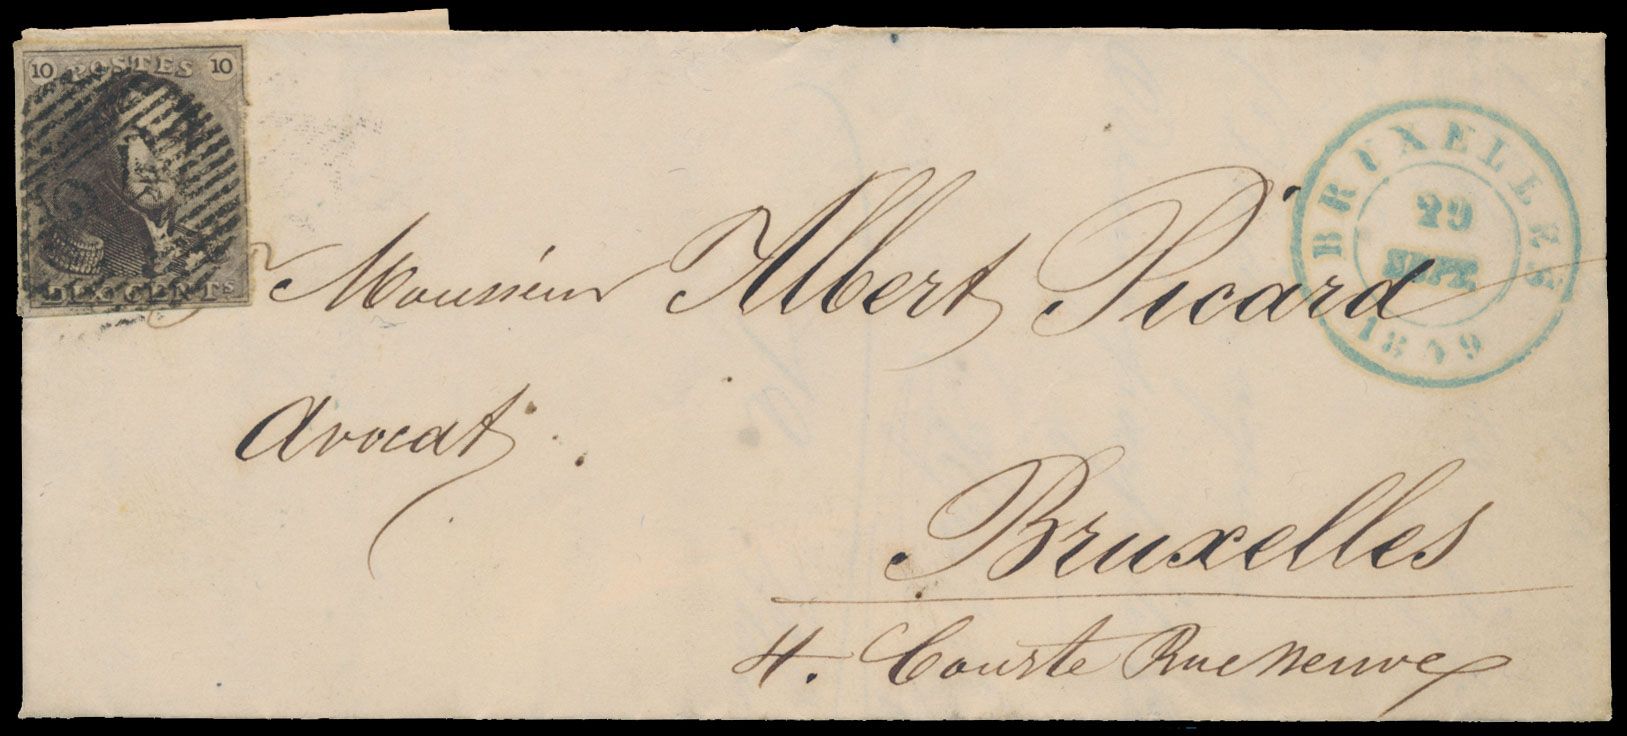 10 POSTES 10
DIX CENTS
BRUXELLES
29
SEPT.
1849
Monsieur Albert Picard
Avocat.
Bruxelles
4. Courte Rue Neuve